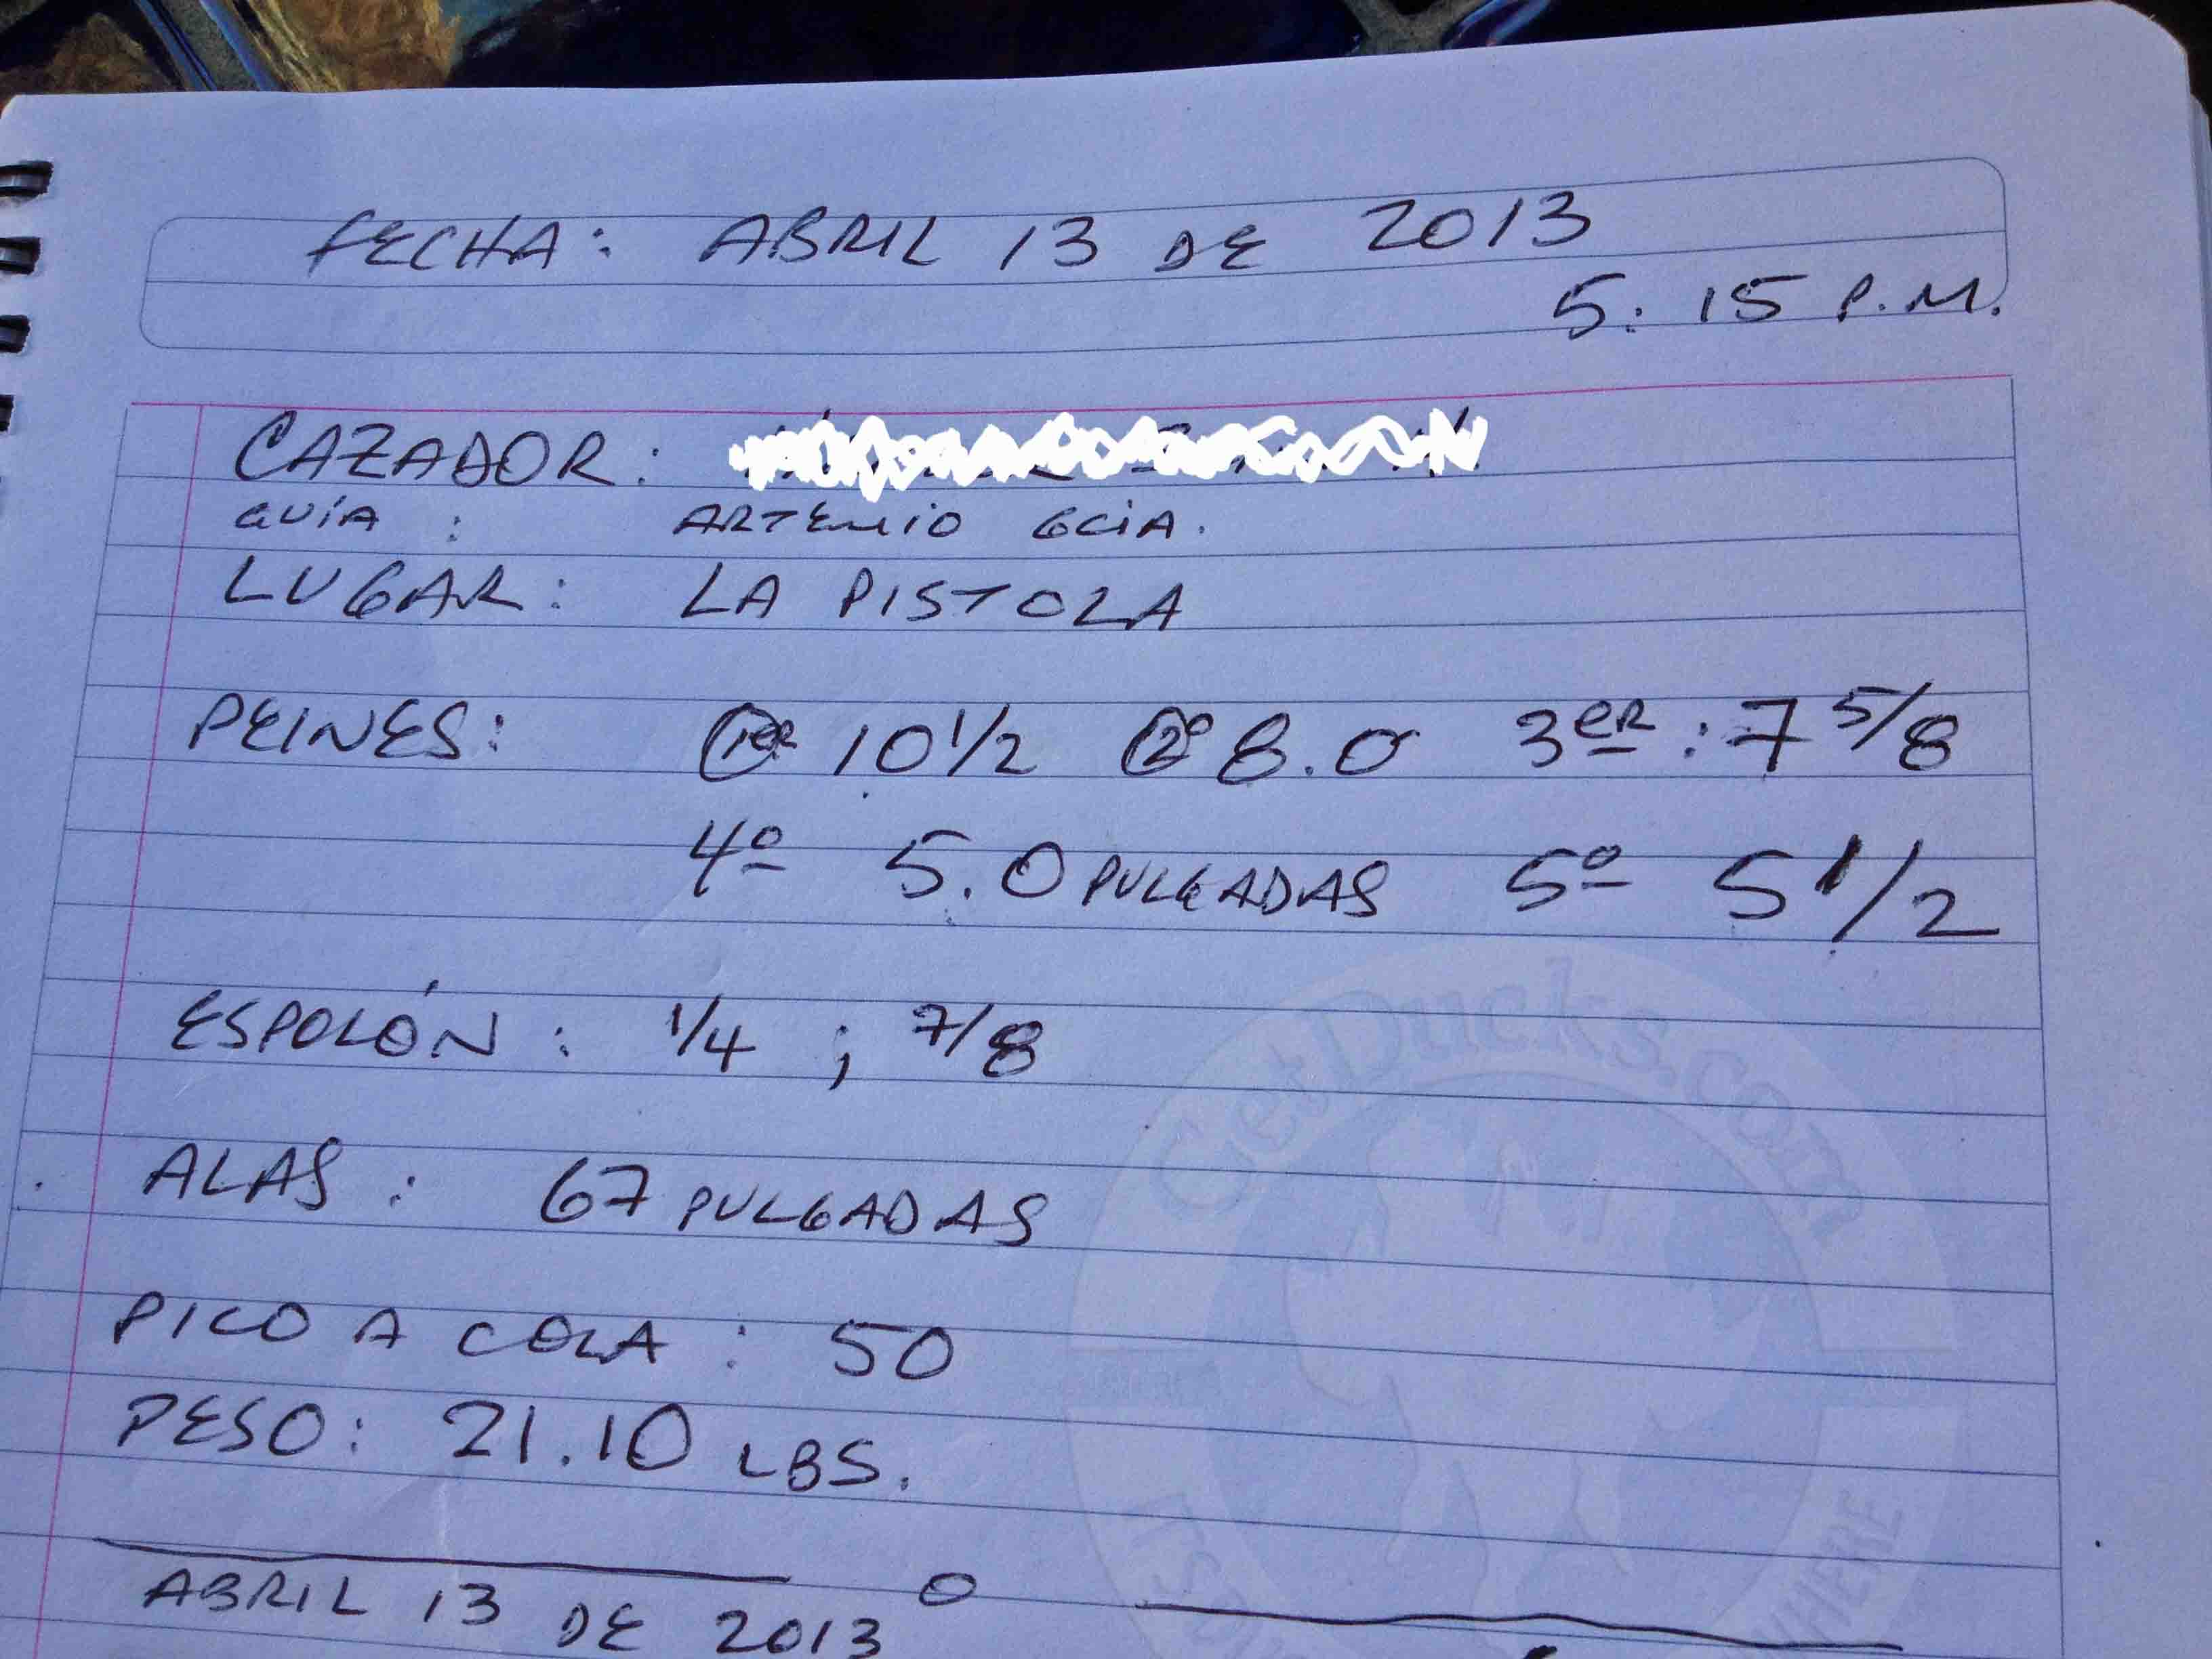 FECHA: ABRIL 13 DE 2013
5:15 P.M.
CAZADOR:
GUÍA : ARTEMIO GCIA.
LUGAR: LA PISTOLA
PEINES: 1er 10 1/2 2º 8.0 3er: 7 5/8
4º 5.0 PULGADAS 5º 5 1/2
ESPOLÓN : 1/4 ; 7/8
ALAS : 67 PULGADAS
PICO A COLA : 50
PESO: 21.10 LBS.
ABRIL 13 DE 2013
GetDucks.com